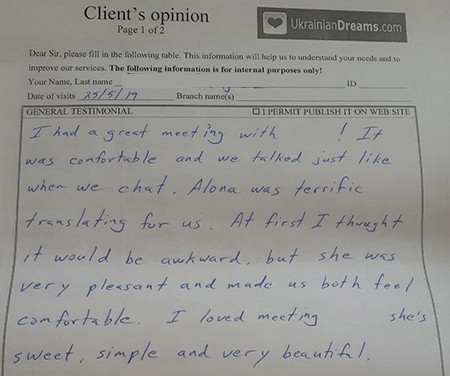 Client's opinion
Page 1 of 2
UkrainianDreams.com
Dear Sir, please fill in the following table. This information will help us to understand your needs and to
improve our services. The following information is for internal purposes only!
Your Name, Last name ID
Date of visits 25/5/19 Branch name(s)
GENERAL TESTIMONIAL ☐ I PERMIT PUBLISH IT ON WEB SITE
I had a great meeting with ! It
was comfortable and we talked just like
when we chat. Alona was terrific
translating for us. At first I thought
it would be awkward, but she was
very pleasant and made us both feel
comfortable. I loved meeting she's
sweet, simple and very beautiful.